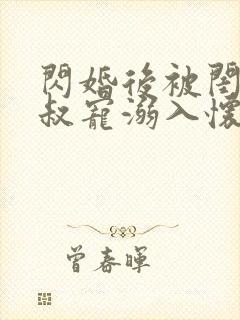 閃婚後被閨
叔寵溺入懷
曾春暉